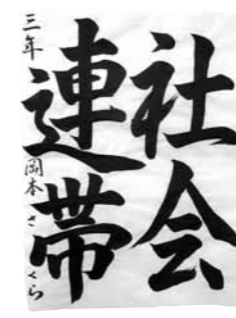 社会
連帯
三年 岡本 さくら